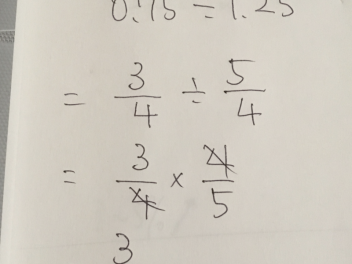 0.75 ÷ 1.25
= 3/4 ÷ 5/4
= 3/4 × 4/5
3